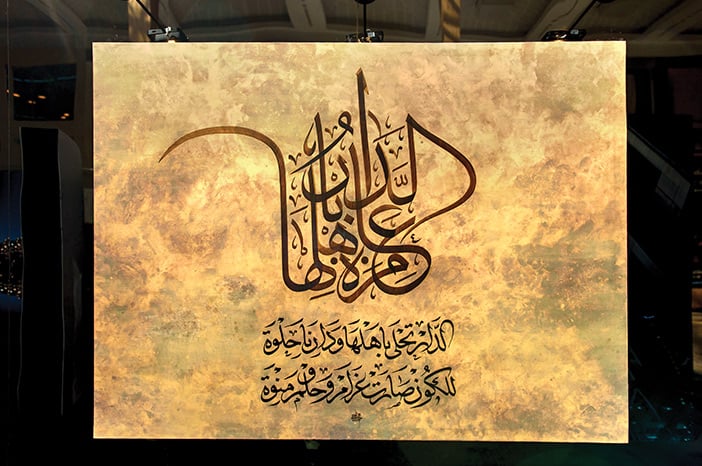 الدَّارُ عامرة بأهلها
الدّار تحلى باهلها ودارنا حلوة
للكون صارت غرام وحلم ومنوة